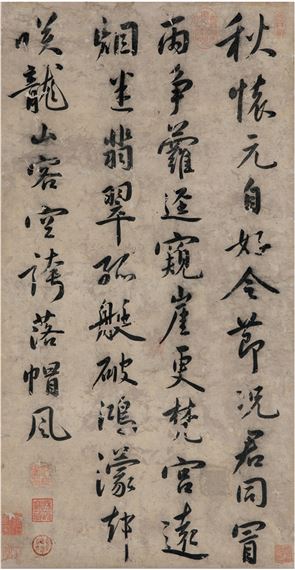 秋懷元自好令節況君同冒
雨爭蘿逕窺崖更梵宮遠
烟坐翡翠孤艇破鴻濛却
咲龍山客空誇落帽風